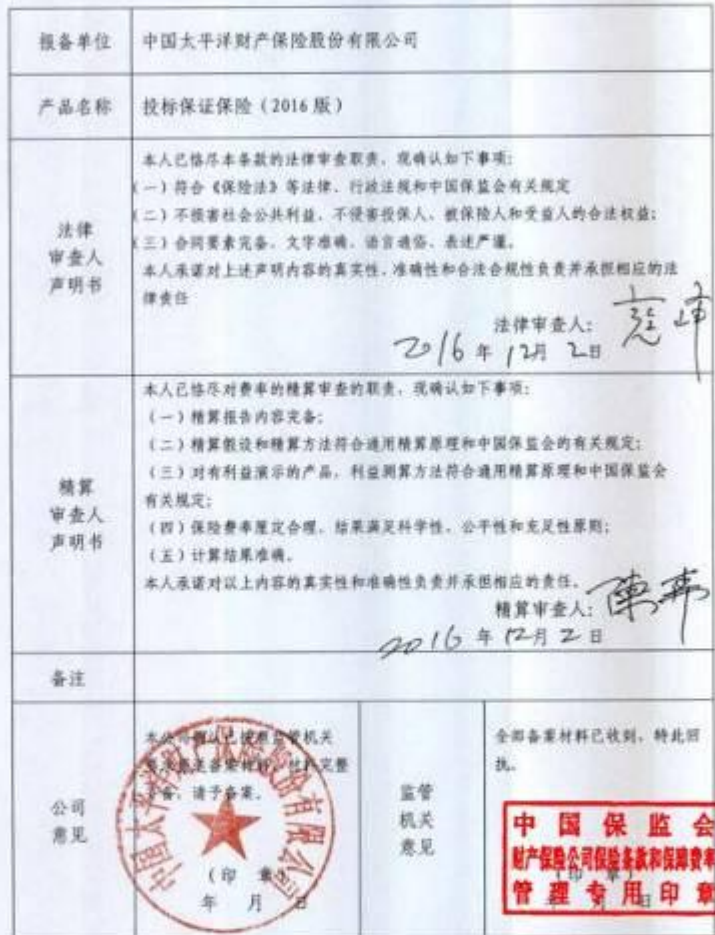 报备单位
中国太平洋财产保险股份有限公司
产品名称
投标保证保险（2016 版）
法律
审查人
声明书
本人已恪尽本条款的法律审查职责，现确认如下事项：
（一）符合《保险法》等法律、行政法规和中国保监会有关规定
（二）不损害社会公共利益、不侵害投保人、被保险人和受益人的合法权益；
（三）合同要素完备、文字准确、语言通俗、表述严谨。
本人承诺对上述声明内容的真实性、准确性和合法合规性负责并承担相应的法
律责任
法律审查人：
2016 年 12月 2日
精算
审查人
声明书
本人已恪尽对费率的精算审查的职责，现确认如下事项：
（一）精算报告内容完备；
（二）精算假设和精算方法符合通用精算原理和中国保监会的有关规定；
（三）对有利益演示的产品，利益测算方法符合通用精算原理和中国保监会
有关规定；
（四）保险费率厘定合理，结果满足科学性、公平性和充足性原则；
（五）计算结果准确。
本人承诺对以上内容的真实性和准确性负责并承担相应的责任。
精算审查人：
2016 年 12月 2日
备注
公司
意见
机关
完整
备，请予备案。
（印 章）
年 月 日
中国太平洋财产保险股份有限公司
监管
机关
意见
全部备案材料已收到，特此回
执。
中国保监会
财产保险公司保险条款和保险费率
管理专用印章